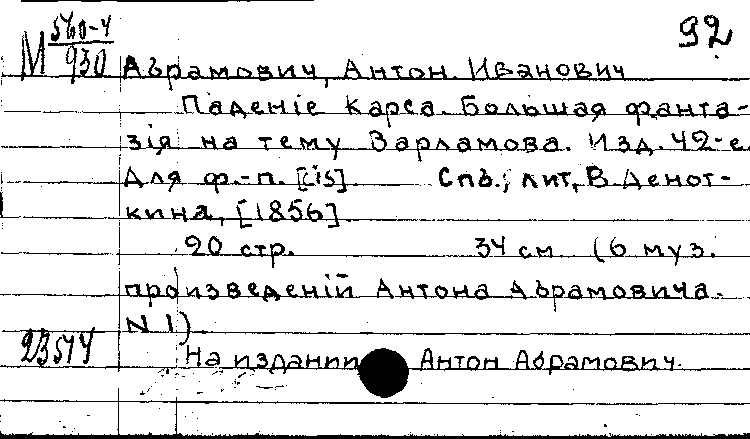 М 560-4/930
92
Абрамович, Антон Иванович
Паденіе Карса. Большая фанта-
зія на тему Варламова. Изд. 42-е.
Для ф.-п. [cis]. Спб., лит. В. Денот-
кина, [1856].
20 стр. 34 см (6 муз.
произведеній Антона Абрамовича.
N 1).
23544
На издании: Антон Абрамович.